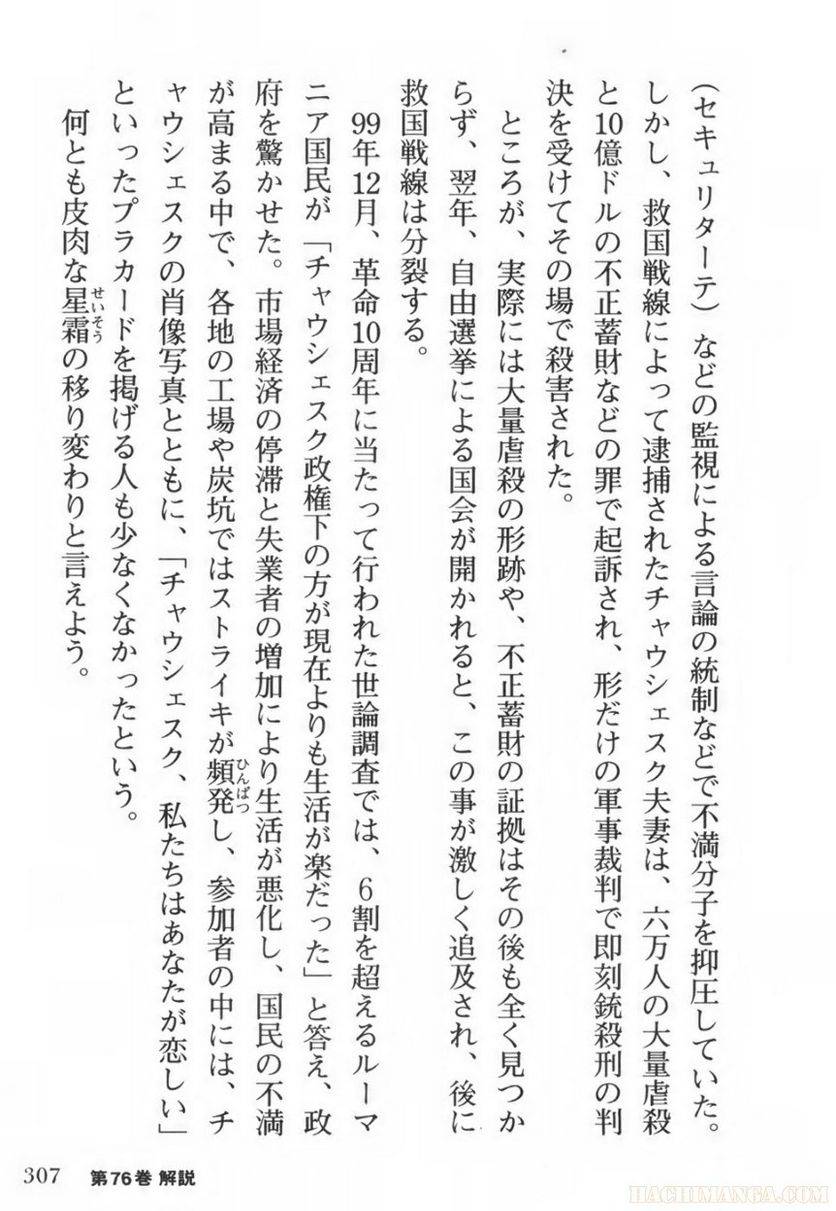 （セキュリターテ）などの監視による言論の統制などで不満分子を抑圧していた。
しかし、救国戦線によって逮捕されたチャウシェスク夫妻は、六万人の大量虐殺
と10億ドルの不正蓄財などの罪で起訴され、形だけの軍事裁判で即刻銃殺刑の判
決を受けてその場で殺害された。
ところが、実際には大量虐殺の形跡や、不正蓄財の証拠はその後も全く見つか
らず、翌年、自由選挙による国会が開かれると、この事が激しく追及され、後に
救国戦線は分裂する。
99年12月、革命10周年に当たって行われた世論調査では、6割を超えるルーマ
ニア国民が「チャウシェスク政権下の方が現在よりも生活が楽だった」と答え、政
府を驚かせた。市場経済の停滞と失業者の増加により生活が悪化し、国民の不満
が高まる中で、各地の工場や炭坑ではストライキが頻発し、参加者の中には、チ
ひんぱつ
ャウシェスクの肖像写真とともに、「チャウシェスク、私たちはあなたが恋しい」
といったプラカードを掲げる人も少なくなかったという。
何とも皮肉な星霜の移り変わりと言えよう。
せいそう
307 第76巻 解説
HACHIMANGA.COM